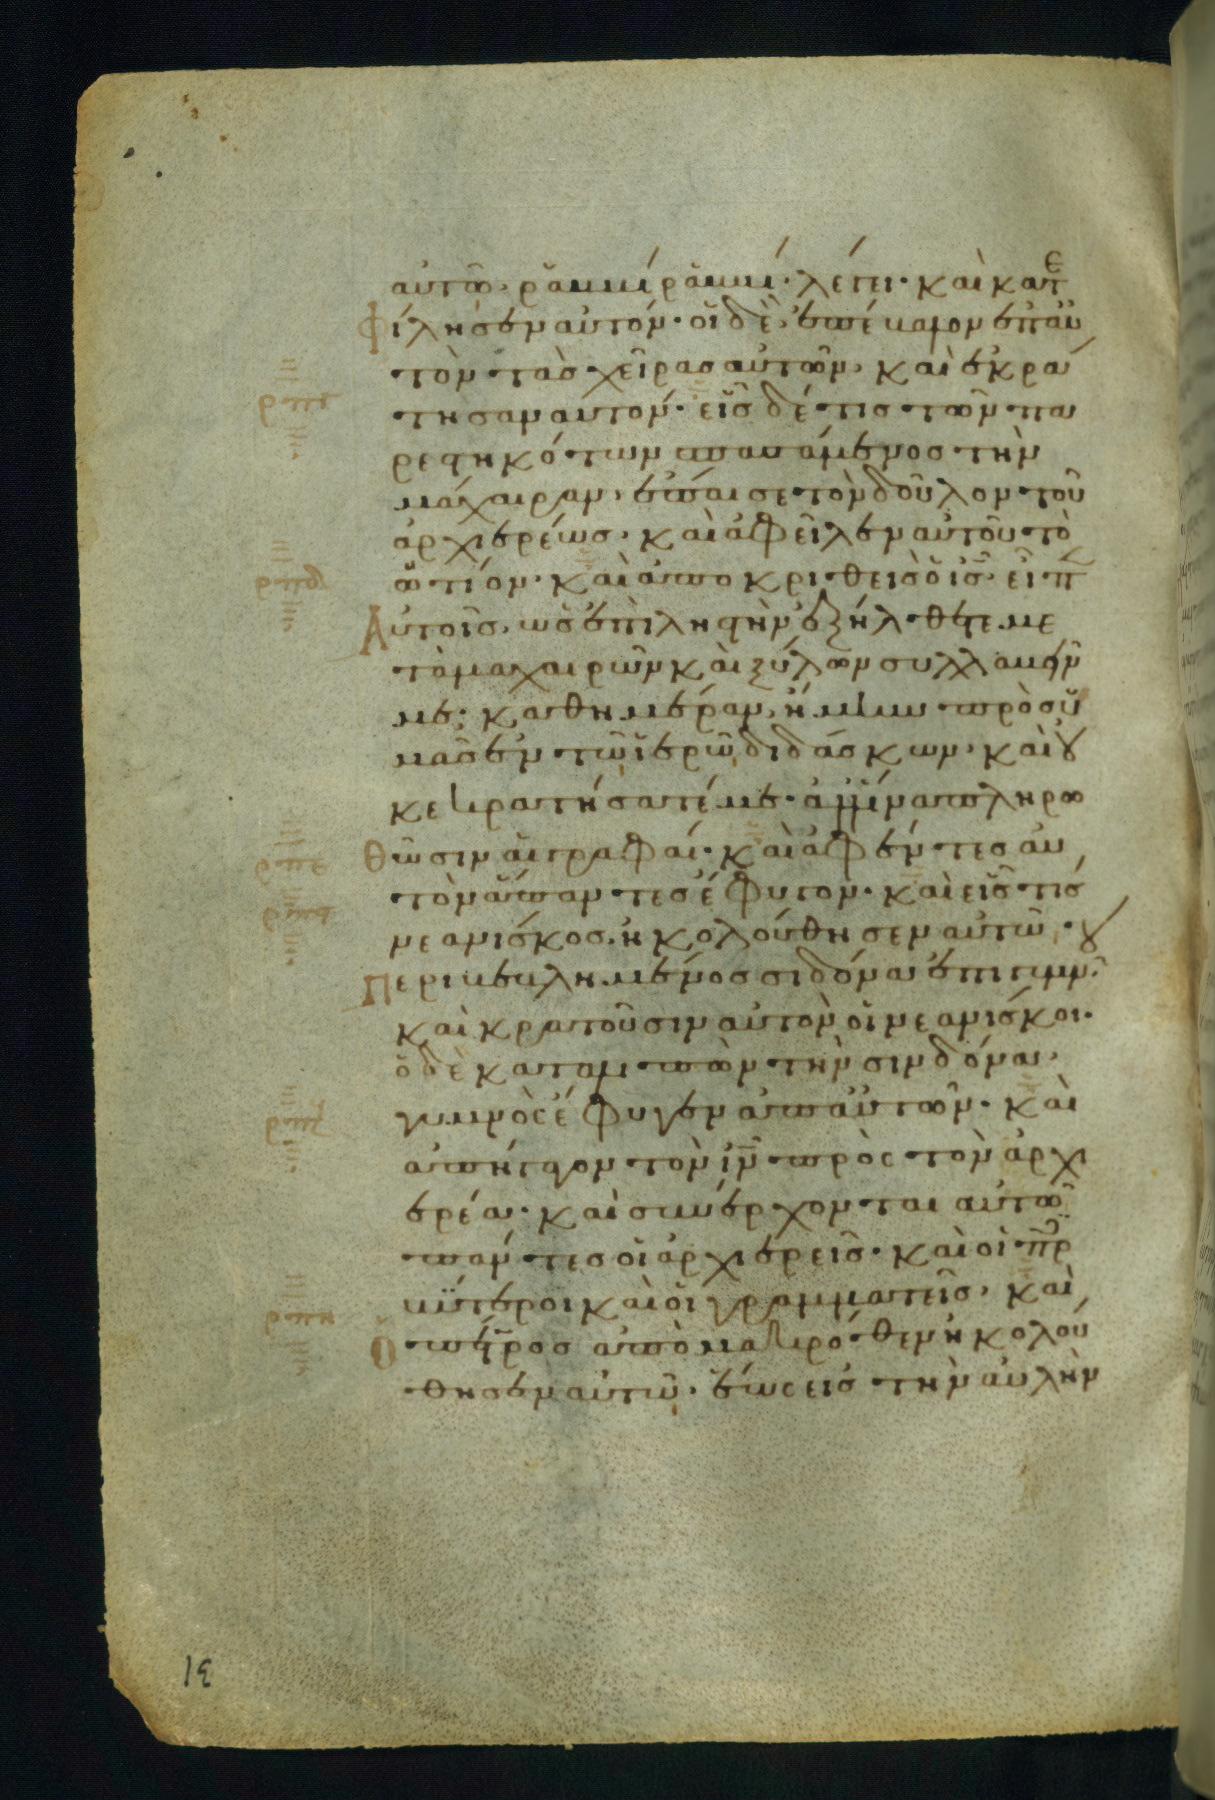 αὐτῶ· ῥαββί ῥαββί· λέγει· καὶ κατε
Φίλησεν αὐτόν· οἱ δὲ, ἐπέβαλον ἐπ αὐ
τὸν τὰς χεῖρας αὐτῶν· καὶ ἐκρά
τησαν αυτόν· εἷς δέ τις τῶν πα
ρεστηκότων σπασάμενος τὴν
μάχαιραν, ἔπαισε τὸν δοῦλον τοῦ
ἀρχιερέως· καὶ ἀφεῖλεν αὐτοῦ τὸ
ὠτίον· καὶ ἀποκριθεὶς ὁ ἰς̄ εἶπ
Αὐτοῖς, ὡς ἐπὶ ληστὴν ἐξήλθετε με
τὰ μαχαιρῶν καὶ ξύλων συλλαβεῖν
με· καθημέραν, ἤμην πρὸς ὑ
μᾶς ἐν τῶ ἱερῶ διδάσκων· καὶ οὐ
κ ἐκρατήσατέ με· ἀλλ ἵνα πληρω
θῶσιν αἱ γραφαί· καὶ ἀφέντες αυ
τὸν ἅπαντες ἔφυγον· καὶ εἷς τις
νεανίσκος, ἠκολούθησεν αὐτῶ·
Περιβεβλημένος σιδόνα ἐπι γυμν
καὶ κρατοῦσιν αὐτὸν οἱ νεανίσκοι·
ὁ δὲ καταλιπὼν τὴν σινδόνα,
γυμνὸς ἔφυγεν ἀπ αὐτῶν· καὶ
ἀπήγαγον τὸν ἰν̄ πρὸς τὸν ἀρχι
ερέα· καὶ συνέρχονται αὐτῶ
πάντες οἱ ἀρχιερεῖς· καὶ οἱ πρεσ
βύτεροι καὶ οἱ γραμματεῖς, καὶ
Ὁ πέτρος ἀπὸ μακρόθεν ἠκολού
θησεν αὐτῶ, ἕως εἰς τὴν αὐλὴν